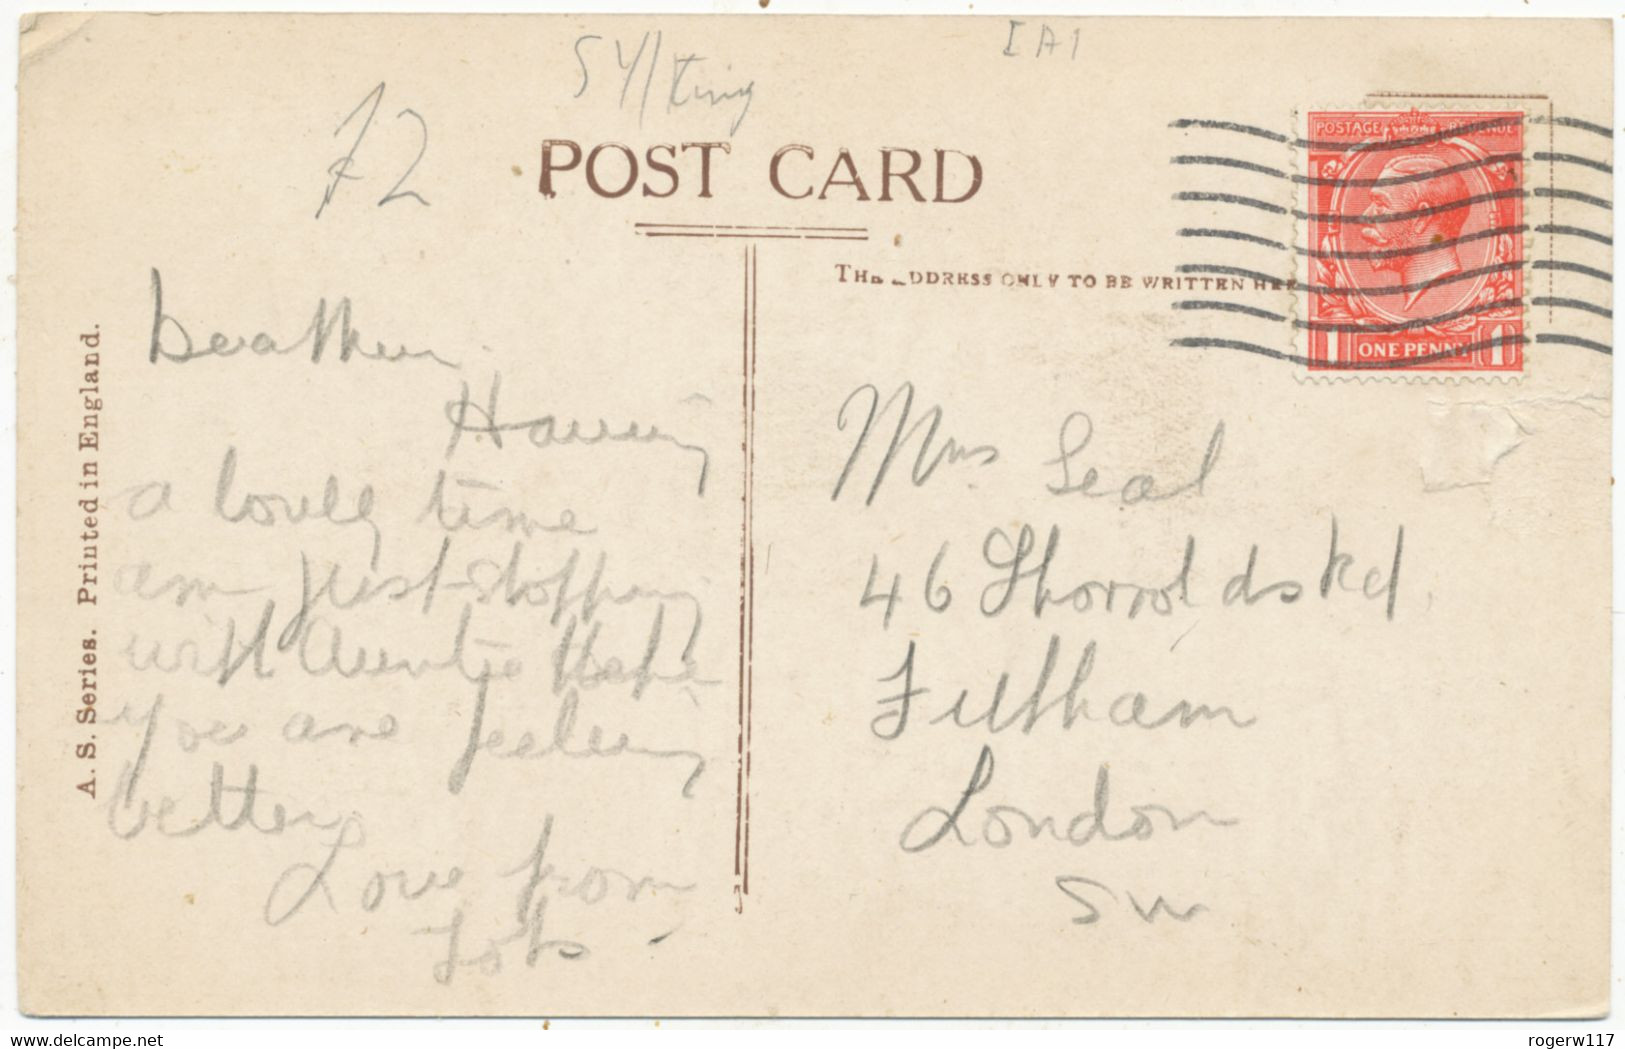 SY/King
IA1
£2
POST CARD
THE ADDRESS ONLY TO BE WRITTEN HERE
POSTAGE REVENUE
1 ONE PENNY 1
A. S. Series. Printed in England.
Dear
Having
a lovely time
am just stopping
with Auntie Hope
you are feeling
better
Love from
Mrs Seal
46 Thorrolds Rd
Fulham
London
SW
www.delcampe.net
rogerw117